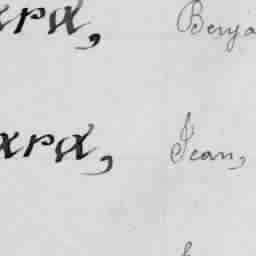 ard, Benja
ard, Jean,